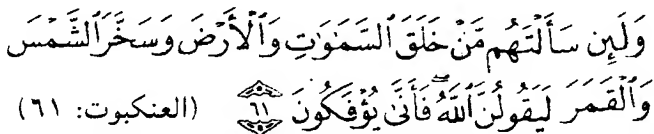 وَلَئِن سَأَلْتَهُم مَّنْ خَلَقَ السَّمَٰوَٰتِ وَالْأَرْضَ وَسَخَّرَ الشَّمْسَ
وَالْقَمَرَ لَيَقُولُنَّ اللَّهُ فَأَنَّىٰ يُؤْفَكُونَ ٦١ (العنكبوت: ٦١)